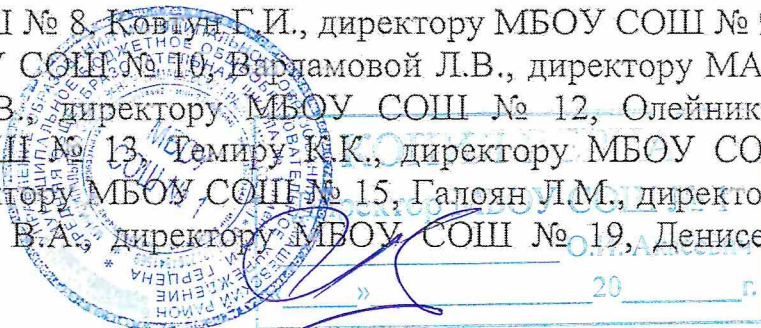 Ш № 8, Ковтун Г.И., директору МБОУ СОШ №
У СОШ № 10, Варламовой Л.В., директору МА
В., директору МБОУ СОШ № 12, Олейник
Ш № 13, Темиру К.К., директору МБОУ СО
КОПИЯ ВЕРНА
ктору МБОУ СОШ № 15, Галоян Л.М., директо
Директор МБОУ СОШ № 1
В.А., директору МБОУ СОШ № 19, Денисе
« » 20 г.
МБОУ
СОШ № 1